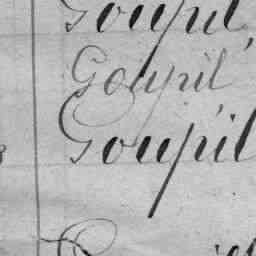 Goupil
Goupil
Goupil